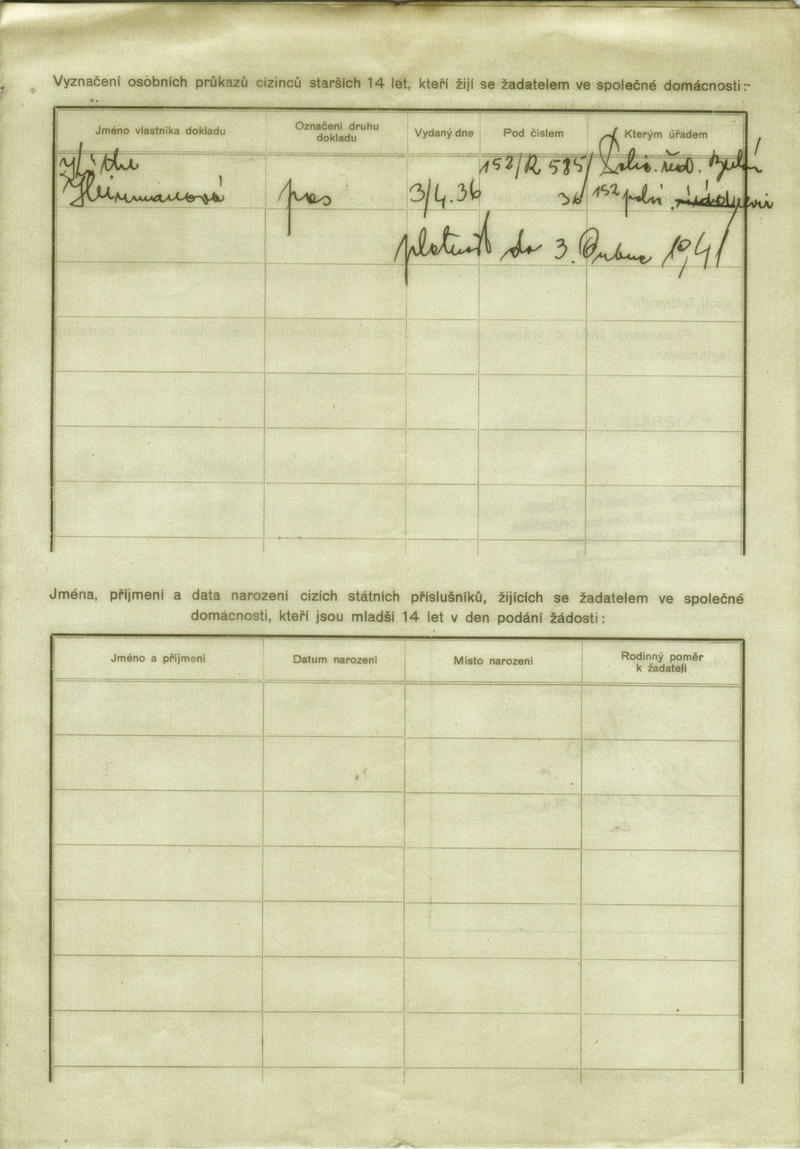 Vyznačení osobních průkazů cizinců starších 14 let, kteří žijí se žadatelem ve společné domácnosti:
Jméno vlastníka dokladu
Označení druhu dokladu
Vydaný dne
Pod číslem
Kterým úřadem
Käthe
152/R 585/
Heinemannová
pas
3/4.36
36
152
platnost do 3. Dubna 1941
Jména, příjmení a data narození cizích státních příslušníků, žijících se žadatelem ve společné
domácnosti, kteří jsou mladší 14 let v den podání žádosti:
Jméno a příjmení
Datum narození
Místo narození
Rodinný poměr
k žadateli